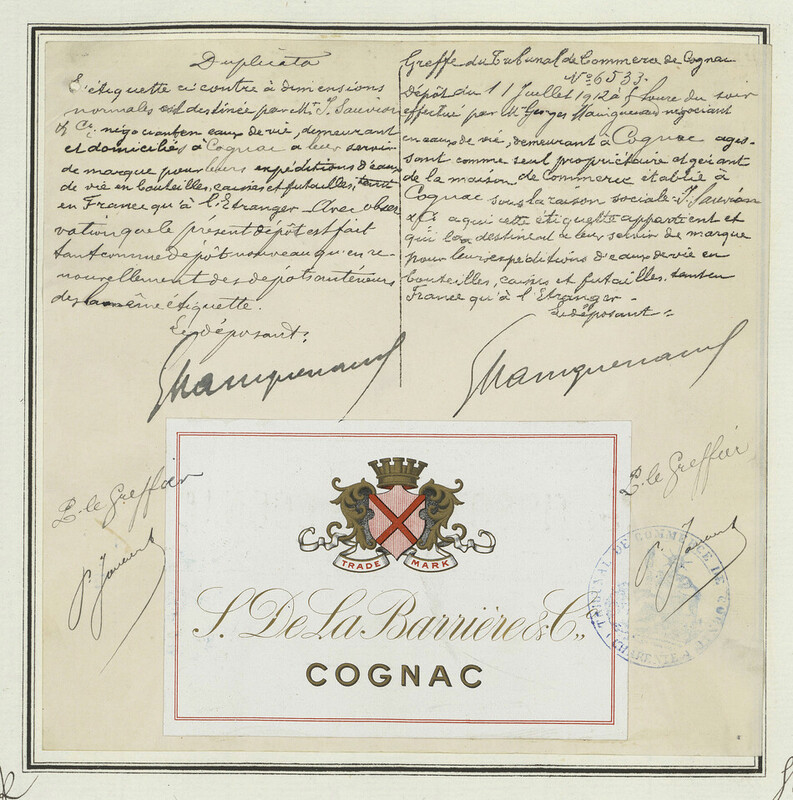 Duplicata
L'étiquette ci contre à dimensions
normales est destinée par Mr. J. Sauvion
& Cie. négociants en eaux de vie, demeurant
et domiciliés à Cognac à leur servir
de marque pour leurs expéditions d'eaux
de vie en bouteilles, caisses et futailles, tant
en France qu'à l'Etranger _ Avec obser
vation que le présent dépôt est fait
tant comme dépôt nouveau qu'en re-
nouvellement des dépôts antérieurs
de la même étiquette.
Le déposant:
Greffe du Tribunal de Commerce de Cognac
No 6533.
Dépôt du 11 Juillet 1912 à 5 heure du soir
effectué par Mr Georges négociant
en eaux de vie, demeurant à Cognac agis-
sant comme seul propriétaire et gérant
de la maison de Commerce établie à
Cognac sous la raison sociale J. Sauvion
& Cie a qui cette étiquette appartient et
qui la destinent a leur servir de marque
pour leurs expéditions d'eaux de vie en
bouteilles, caisses et futailles, tant en
France qu'à l'Etranger _
Le déposant:
P. le Greffier
P. le Greffier
TRADE MARK
S. De La Barrière & Co,,
COGNAC
TRIBUNAL DE COMMERCE DE COGNAC
CHARENTE